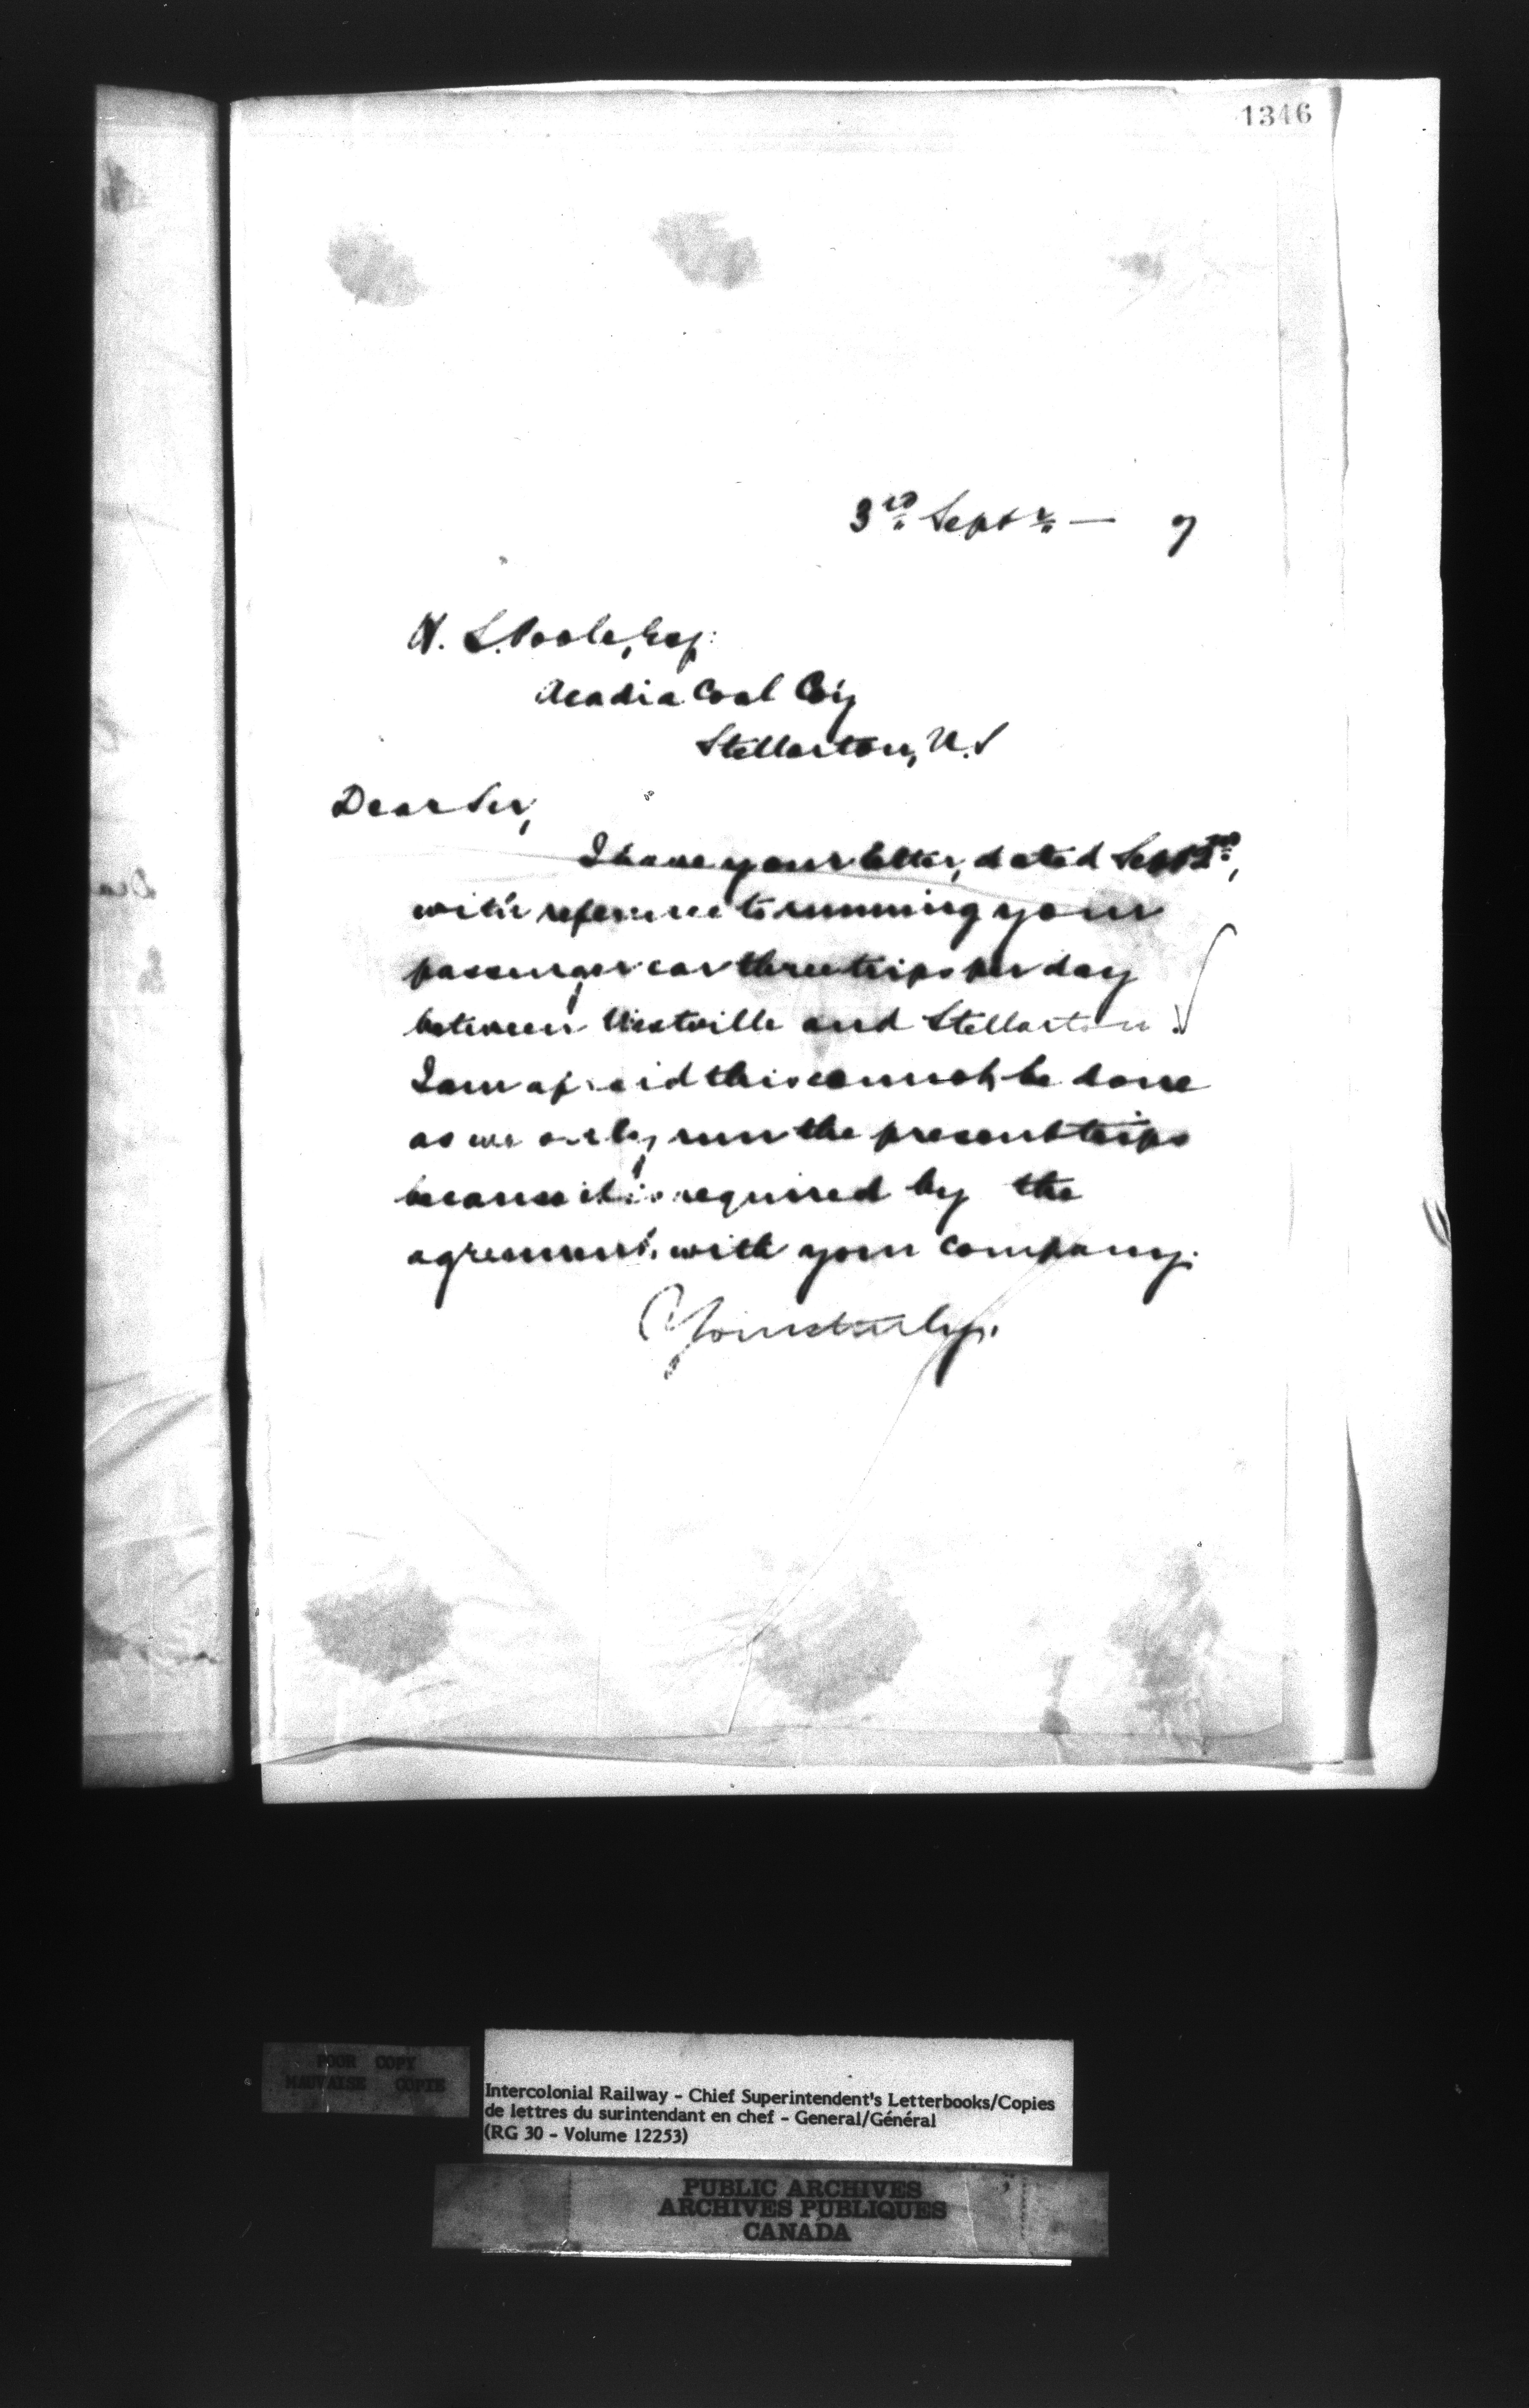 1346
3rd Septr — 7
H. S. Poole, Esq:
Acadia Coal Co'y
Stellarton, N.S
Dear Sir,
I have your letter, dated Sept 2nd,
with reference to running your
passenger car three trips per day
between Westville and Stellarton.
I am afraid this cannot, be done
as we only run the present trips
because it is required by the
agreement, with your company.
Yours truly,
POOR COPY
MAUVAISE COPIE
Intercolonial Railway - Chief Superintendent's Letterbooks/Copies
de lettres du surintendant en chef - General/Général
(RG 30 - Volume 12253)
PUBLIC ARCHIVES
ARCHIVES PUBLIQUES
CANADA